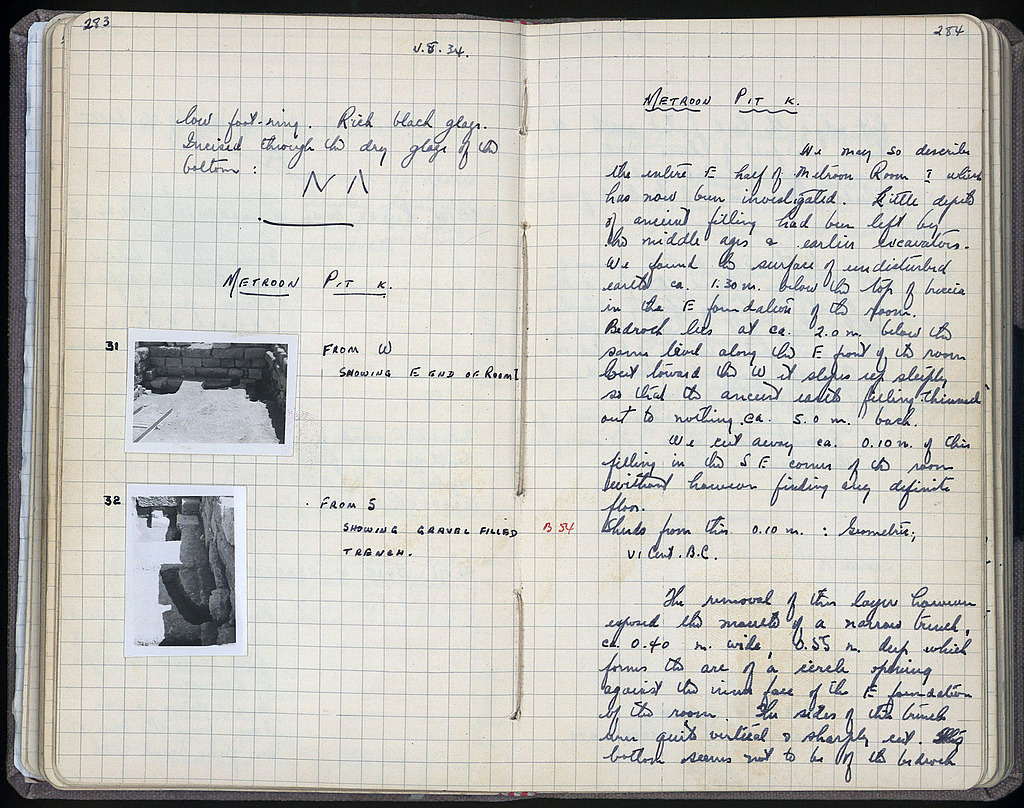 283
V.8.34.
low foot-ring. Rich black glaze.
Incised through the dry glaze of the
bottom :
METROON PIT K.
31
FROM W
SHOWING E END OF ROOM I
32
FROM S
SHOWING GRAVEL FILLED
TRENCH.
284
METROON PIT K.
We may so describe
the entire E half of Metroon Room I which
has now been investigated. Little depth
of ancient filling had been left by
the middle ages & earlier excavators.
We found the surface of undisturbed
earth ca. 1.30 m. below the top of breccia
in the E foundation of the room.
Bedrock lies at ca. 2.0 m. below the
same level along the E front of the room
but toward the W it slopes up steeply
so that the ancient earth filling thinned
out to nothing ca. 5.0 m. back.
We cut away ca. 0.10 m. of this
filling in the S E corner of the room
without however finding any definite
floor.
B 54 Sherds from this 0.10 m. : Geometric;
VI Cent. B.C.
The removal of this layer however
exposed the mouth of a narrow trench,
ca. 0.40 m. wide, 0.55 m. deep which
forms the arc of a circle opening
against the inner face of the E foundation
of the room. The sides of this trench
were quite vertical & sharply cut.
bottom seems not to be of the bedrock